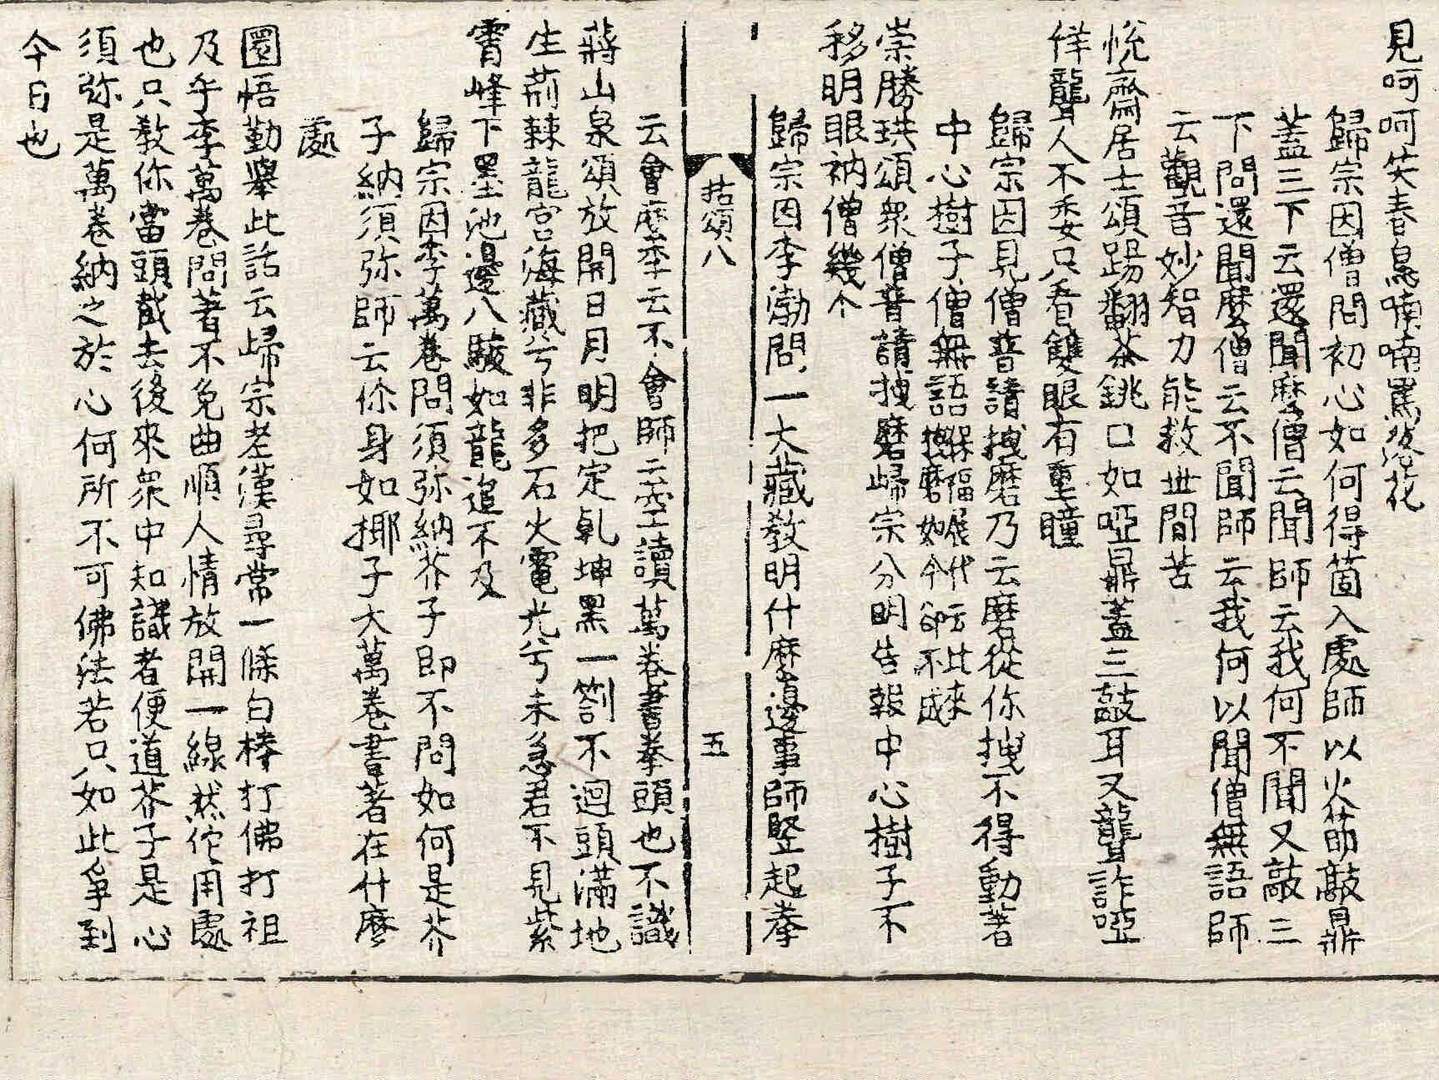 見呵呵笑春鳥喃喃罵落花
歸宗因僧問初心如何得箇入處師以火筯敲鼎
蓋三下云還聞麼僧云聞師云我何不聞又敲三
下問還聞麼僧云不聞師云我何以聞僧無語師
云觀音妙智力能救世間苦
悅齋居士頌踢翻茶銚口如啞鼎蓋三敲耳又聾詐啞
佯聾人不委只看雙眼有重瞳
歸宗因見僧普請拽磨乃云磨從你拽不得動著
中心樹子僧無語保福展代云比來
拽磨如今却不成
崇勝珙頌眾僧普請拽磨歸宗分明告報中心樹子不
移明眼衲僧幾个
歸宗因李渤問一大藏教明什麼邊事師竪起拳
拈頌八 五
云會麼李云不會師云空讀萬卷書拳頭也不識
蔣山泉頌放開日月明把定乹坤黑一劄不迴頭滿地
生荊棘龍宮海藏兮非多石火電光兮未急君不見紫
霄峰下墨池邊八駿如龍追不及
歸宗因李萬卷問須弥納芥子即不問如何是芥
子納須弥師云你身如揶子大萬卷書著在什麼
處
圜悟勤舉此話云歸宗老漢尋常一條白棒打佛打祖
及乎李萬卷問著不免曲順人情放開一線然佗用處
也只教你當頭截去後來眾中知識者便道芥子是心
須弥是萬卷納之於心何所不可佛法若只如此爭到
今日也